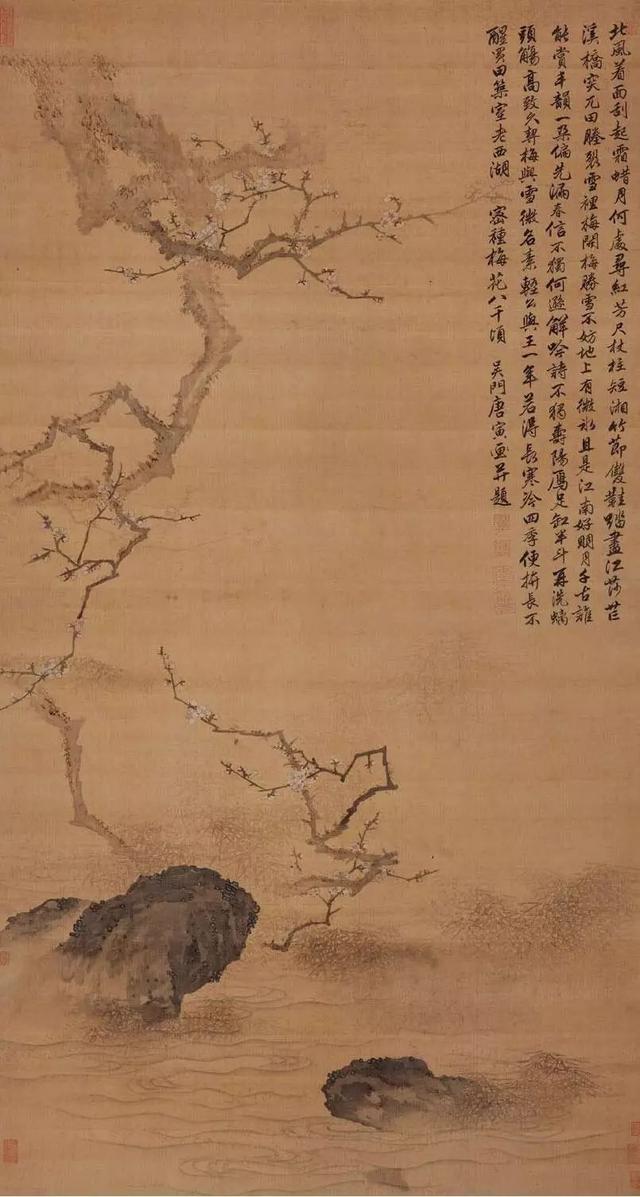 北風着面刮起霜蜡月何處尋紅芳尺杖柱短湘竹節雙鞋踏盡江茆芒
溪橋突兀田塍裂雪裡梅開梅勝雪不妨地上有微冰且是江南好明月千古誰
能賞丰韻一朵偏先漏春信不獨何遜解吟詩不獨壽陽鴈足缸半斗再洗螭
頭觴高致久契梅與雪微名素輕公與王一年若得長寒冷四季便拚長不
醒買田築室老西湖 密種梅花八千頃 吳門唐寅画并題